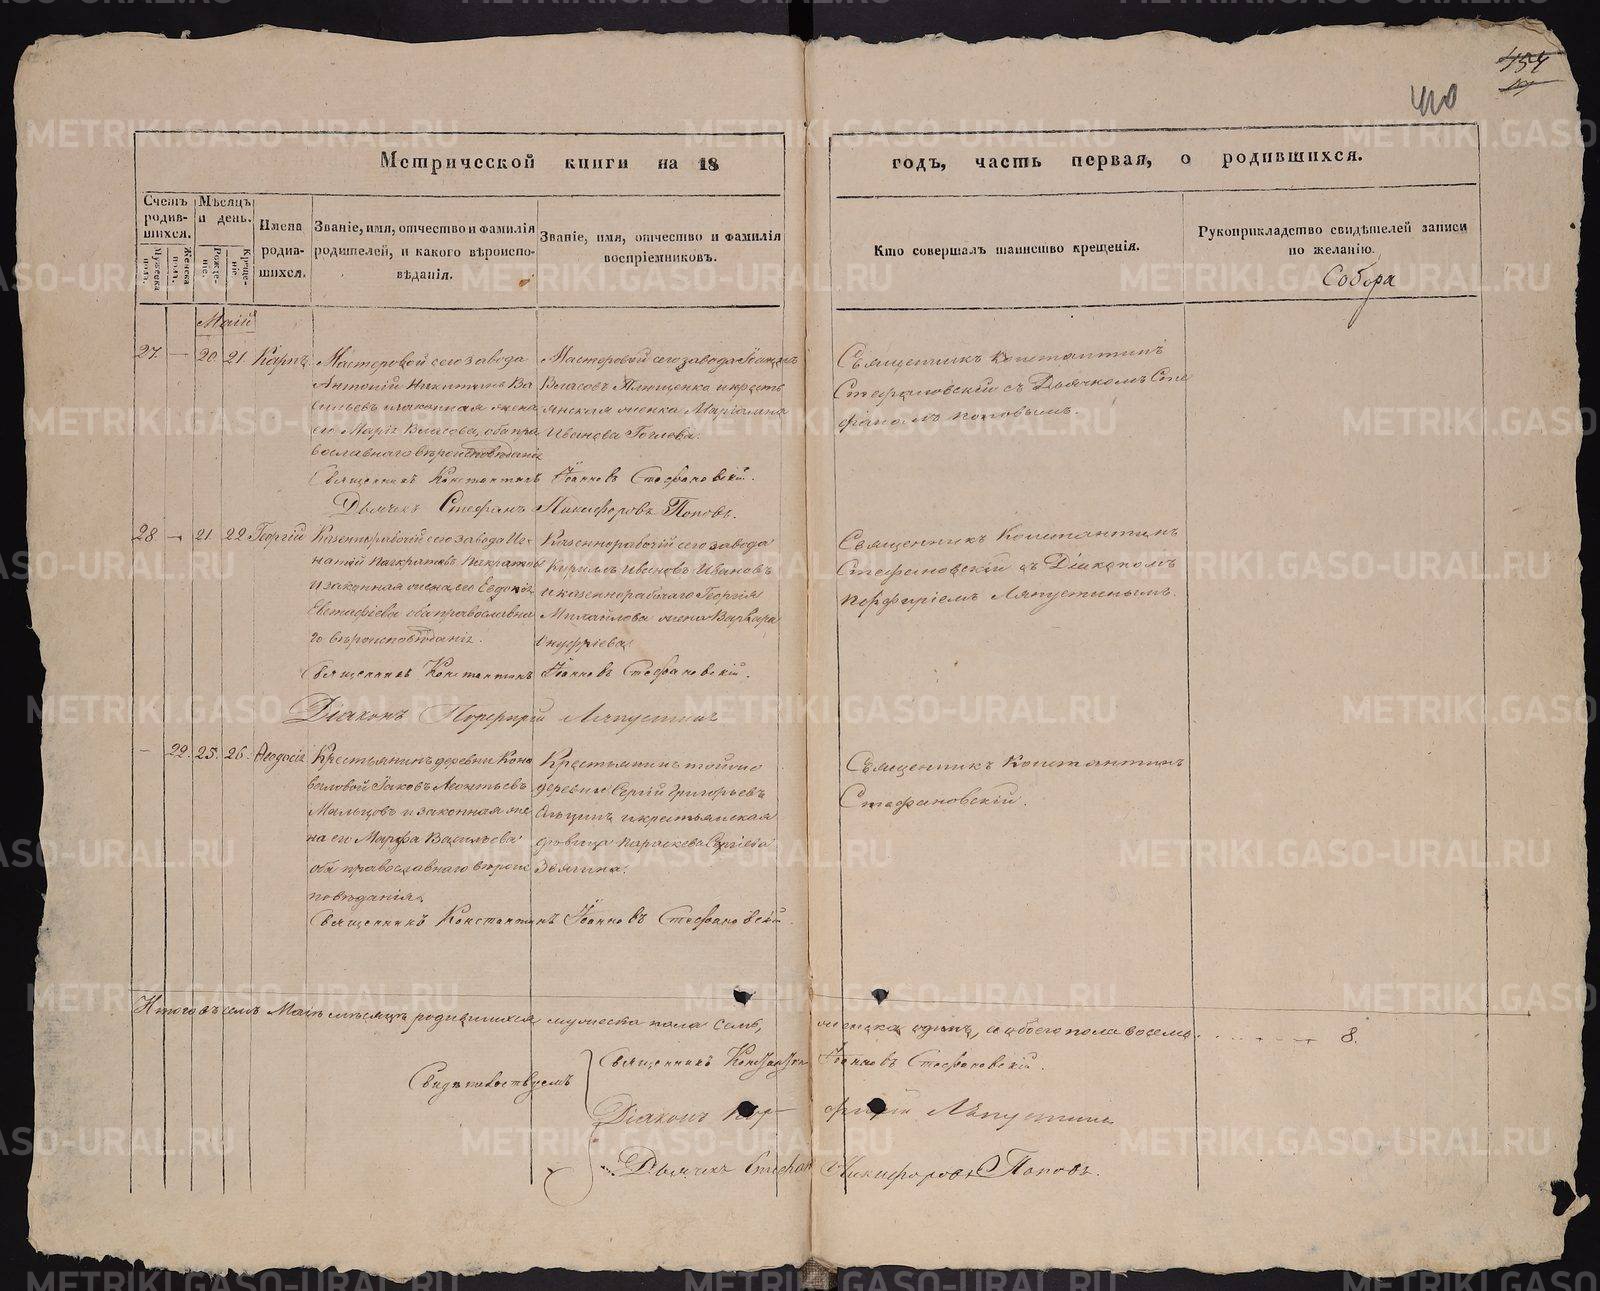 454
410
Метрической книги на 18
годъ, часть первая, о родившихся.
Счетъ родив-
шихся.
Мужеска полъ.
Женска полъ.
Мѣсяцъ и день.
Рожде-
ніе.
Креще-
ніе.
Имена
родив-
шихся.
Званіе, имя, отчество и фамилія
родителей, и какого вѣроиспо-
вѣданія.
Званіе, имя, отчество и фамилія
воспріемниковъ.
Кто совершалъ таинство крещенія.
Рукоприкладство свидѣтелей записи
по желанію.
Собора
Маій
27 — 20 21 Карпъ
Мастеровой сего завода
Антоній Никитинъ Ва
сильевъ и законная жена
его Марія Власова, оба пра
вославнаго вѣроисповѣданія
Мастеровой сего завода Іоаннъ
Власовъ и крестъ
янская женка Маріамна
Иванова
Священникъ Константинъ
Стефановскій съ Дьячкомъ Сте
фаномъ Поповымъ.
Священникъ Константинъ Іоанновъ Стефановскій.
Дьячекъ Стефанъ Никифоровъ Поповъ.
28 — 21 22 Георгій
Казеннорабочій сего завода Иг-
натій Панкратовъ
и законная жена его Евдокія
Евстафіева оба православна
го вѣроисповѣданія.
Казеннорабочій сего завода
Кириллъ Ивановъ Ивановъ
и казеннорабочаго Георгія
Михайлова жена Варвара
Онуфріева.
Священникъ Константинъ
Стефановскій съ Діакономъ
Порфиріемъ Ляпустинымъ.
Священникъ Константинъ Іоанновъ Стефановскій.
Діаконъ Порфирій Ляпустинъ
— 22. 25. 26. Ѳеодосія
Крестьянинъ деревни Коно
валовой Іаковъ Леонтьевъ
Мальцовъ и законная же
на его Марфа Васильева
оба православнаго вѣроис
повѣданія.
Крестьянинъ тойже
деревни Сергій Григорьевъ
и крестьянская
дѣвица Параскева Сергіева
Звягина.
Священникъ Константинъ
Стефановскій.
Священникъ Константинъ Іоанновъ Стефановскій.
Итого въ семъ Маіѣ мѣсяцѣ родившихся мужеска пола семь, женска одинъ, а обоего пола восемь. 8.
Свидѣтельствуемъ
Священникъ Константинъ Іоанновъ Стефановскій.
Діаконъ Порфирій Ляпустинъ
Дьячекъ Стефанъ Никифоровъ Поповъ.
METRIKI.GASO-URAL.RU